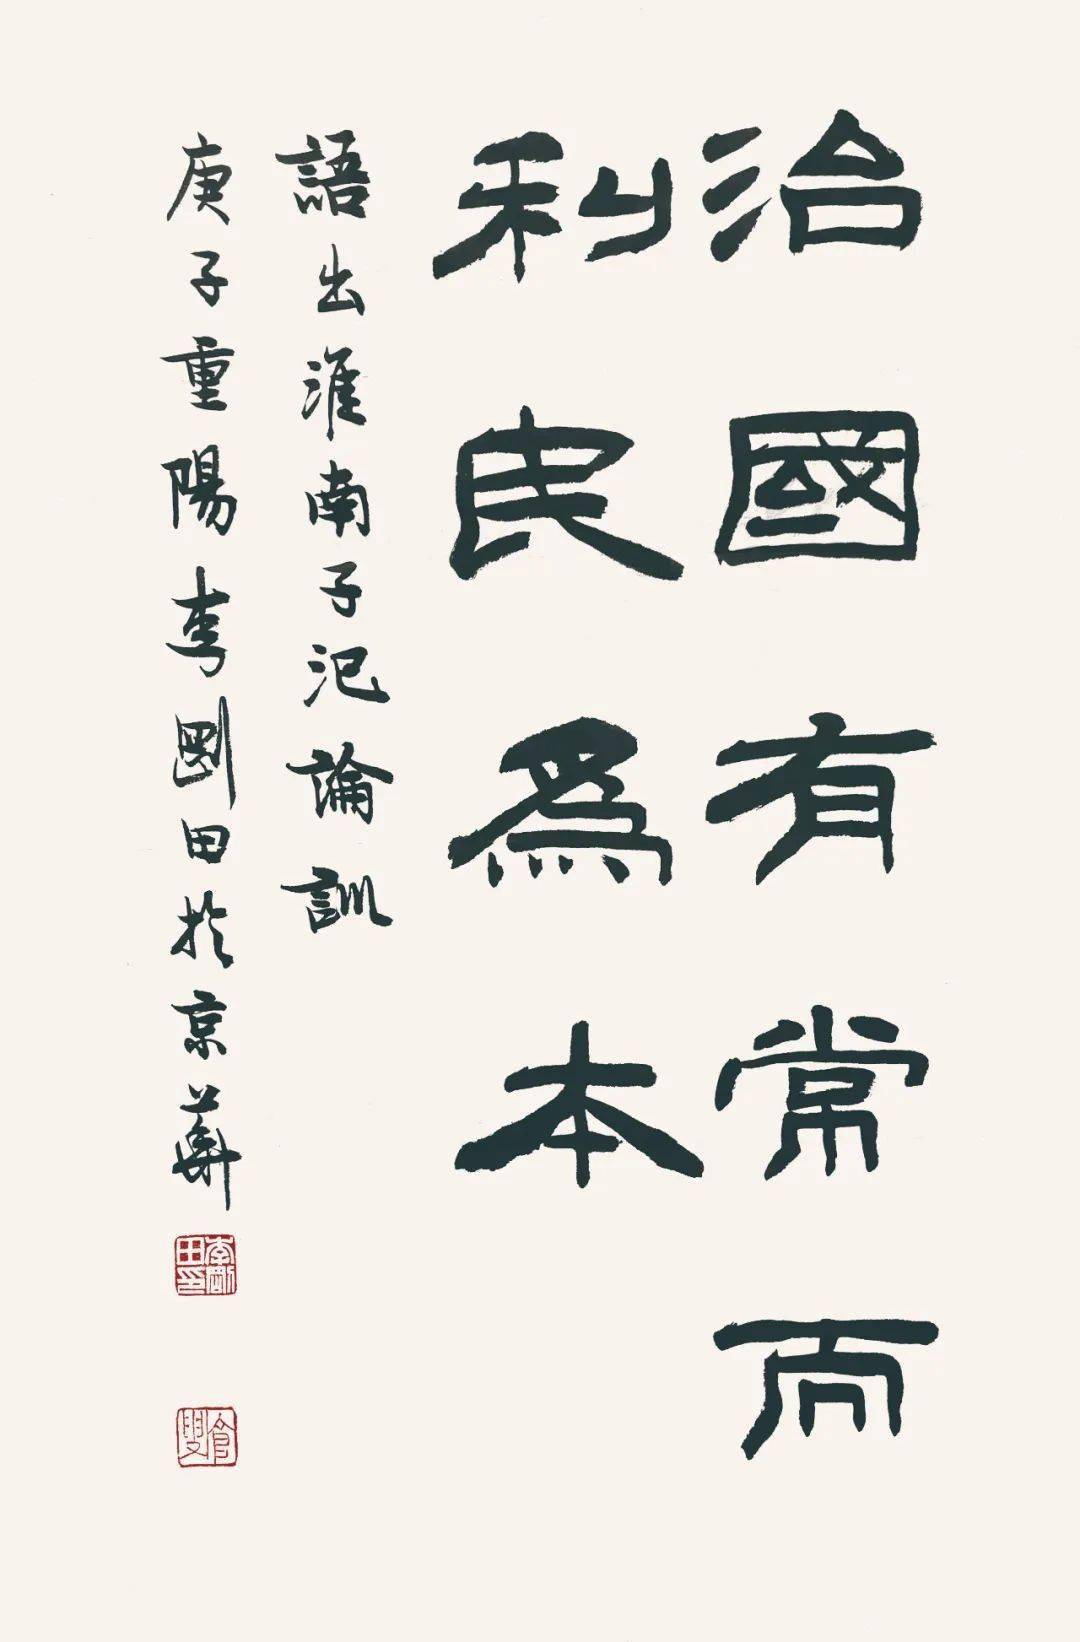 治國有常而
利民爲本
語出淮南子氾論訓
庚子重陽李剛田於京華
李剛田印